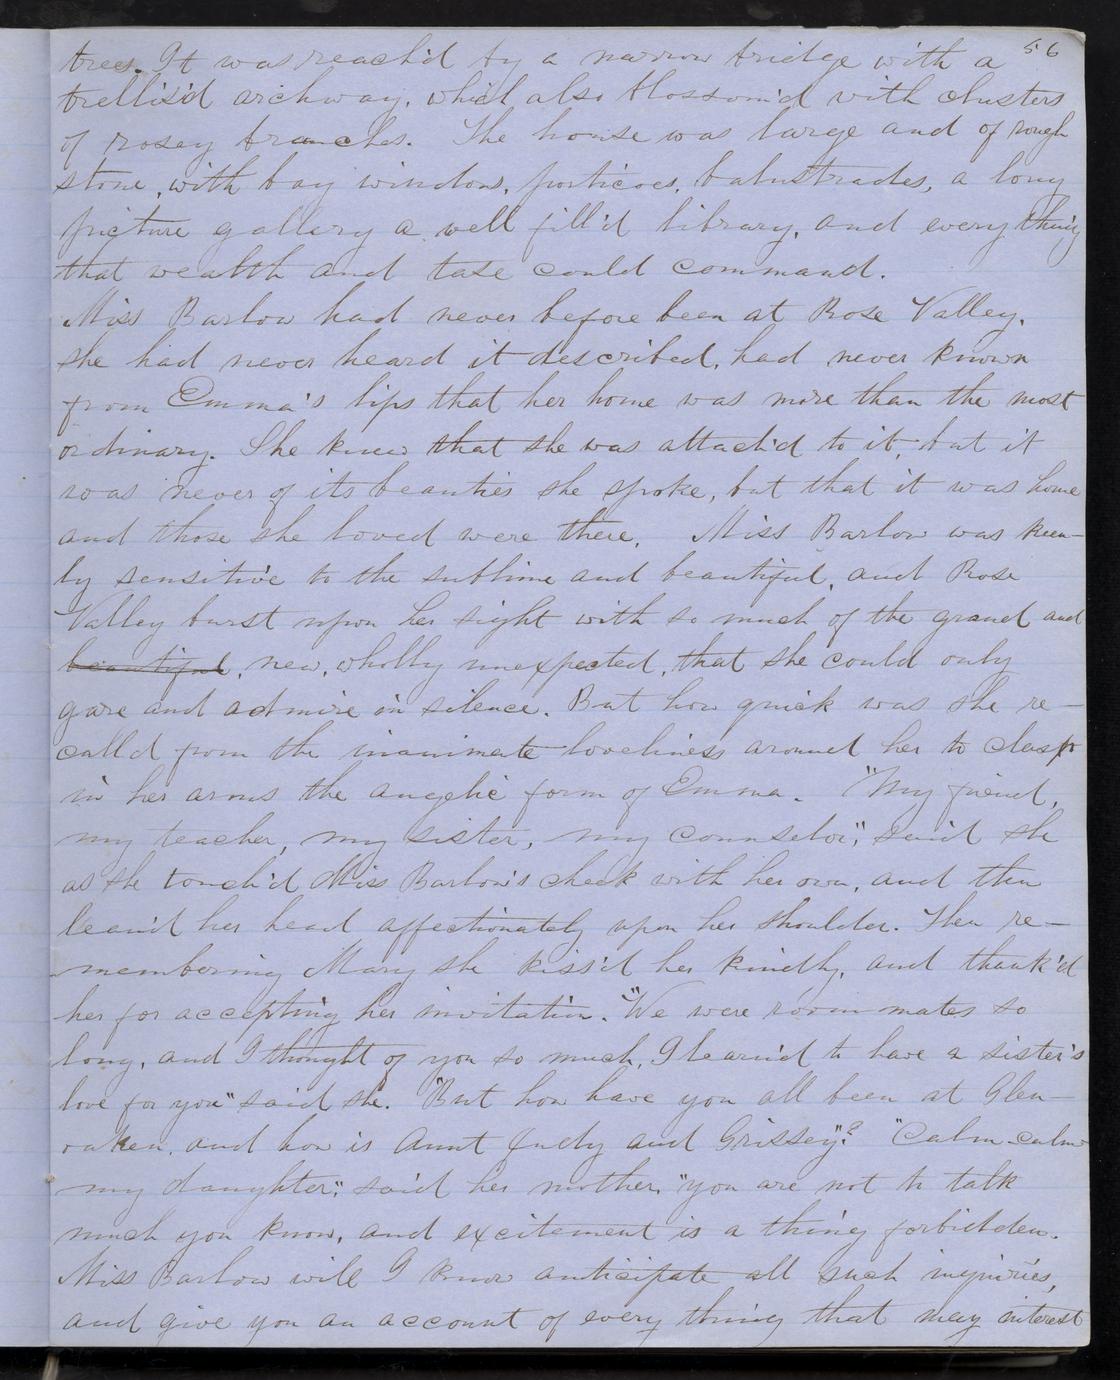 56
trees. It was reach'd by a narrow bridge with a
trellis'd archway, which also blossom'd with clusters
of rosey branches. The house was large and of rough
stone, with bay windows, porticoes, balustrades, a long
picture gallery a well fill'd library, and every thing
that wealth and tase could command.
Miss Barlow had never before been at Rose Valley,
she had never heard it described, had never known
from Emma's lips that her home was more than the most
ordinary. She knew that she was attach'd to it, but it
was never of its beauties she spoke, but that it was home
and those she loved were there. Miss Barlow was keen-
ly sensitive to the sublime and beautiful, and Rose
Valley burst upon her sight with so much of the grand and
beautiful, new, wholly unexpected, that she could only
gaze and admire in silence. But how quick was she re-
call'd from the inanimate loveliness around her to clasp
in her arms the angelic form of Emma. "My friend,
my teacher, my sister, my counselor," said she
as she touch'd Miss Barlow's cheek with her own, and then
lean'd her head affectionately upon her shoulder. Then re-
membering Mary she kiss'd her kindly, and thank'd
her for accepting her invitation. "We were room mates so
long, and I thought of you so much, I learn'd to have a sister's
love for you" said she. "But how have you all been at Glen-
oaken, and how is Aunt Judy and Grissey"? "Calm-calm
my daughter," said her mother, "you are not to talk
much you know, and excitement is a thing forbidden.
Miss Barlow will I know anticipate all such inquiries,
and give you an account of every thing that may interest